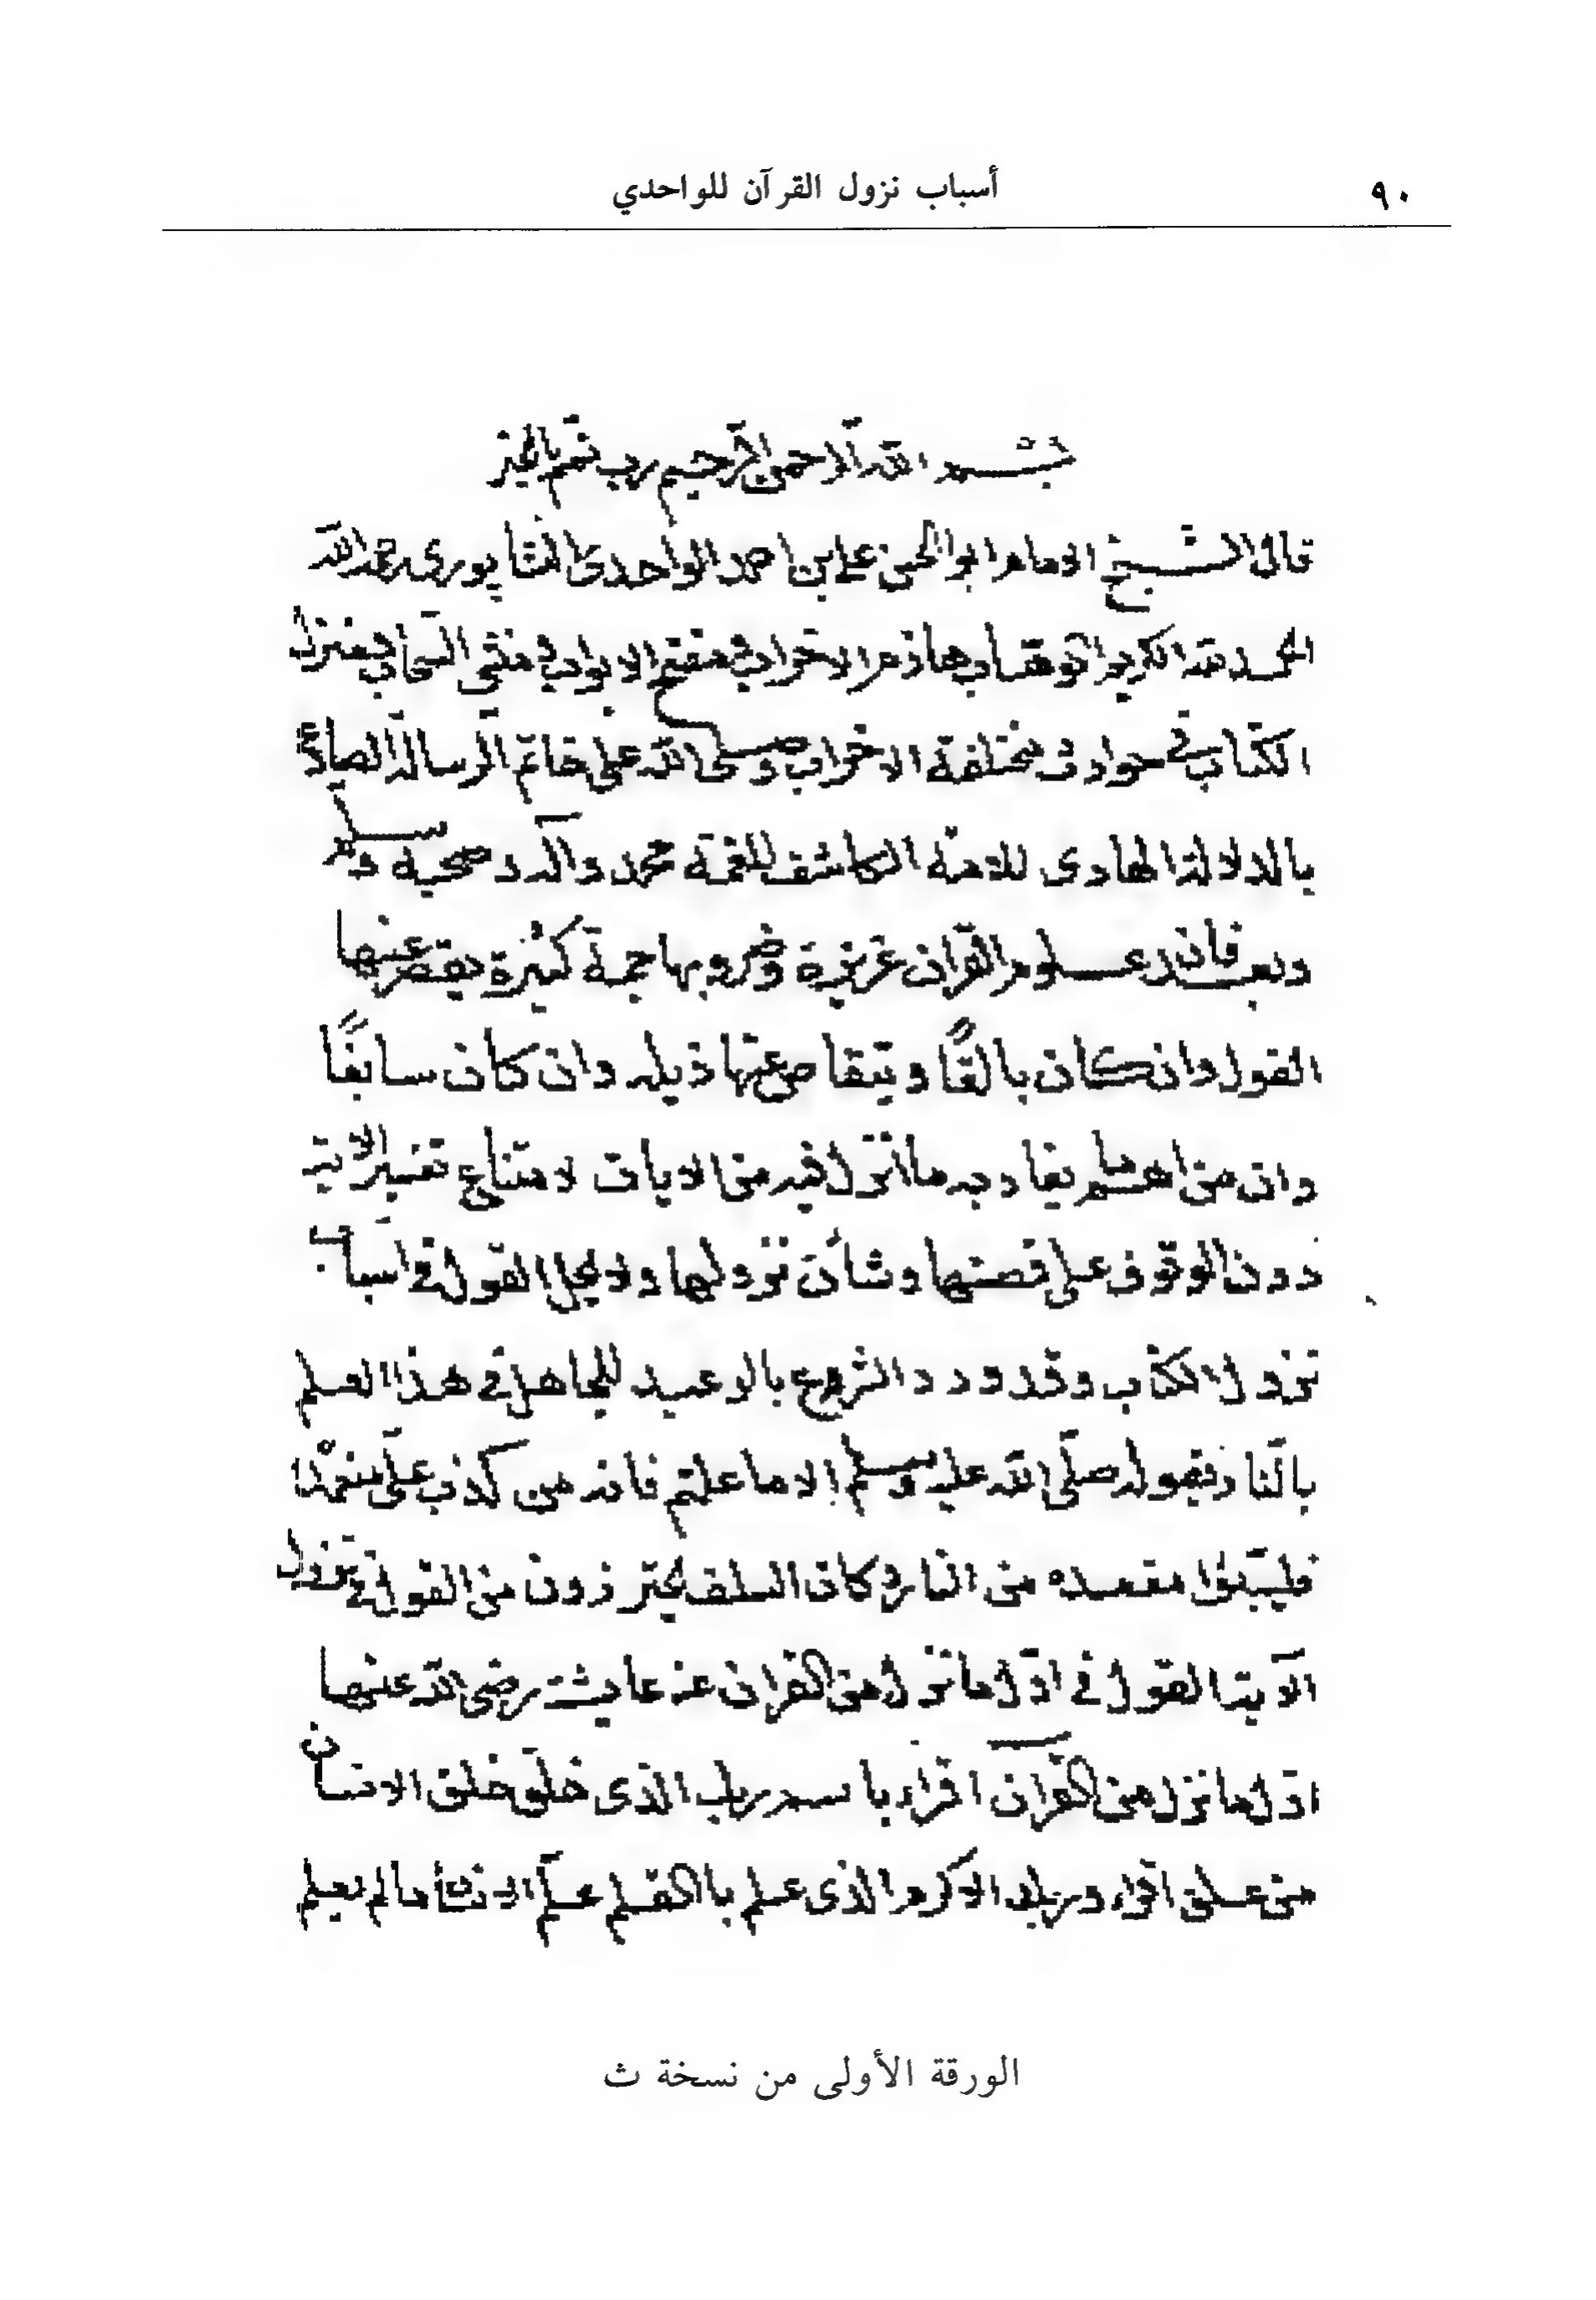 ٩٠
أسباب نزول القرآن للواحدي
بسم الله الرحمن الرحيم رب تمم بالخير
قال الشيخ الامام ابو الحسن على بن احمد الواحدى النسابورى رحمه الله
الحمد لله الكريم الوهاب هازم الاحزاب مفتح الابواب منشى السحاب منزل
الكتاب في حوادث مختلفة الاخراب وصلى الله على خاتم الرسالة الصادع
بالدلالة الهادى للامة الكاشف للغمة محمد وآله وصحبه وسلم
وبعد فان علوم القران غزيزة وضروبها جمة كثيرة يقصر عنها
القول وان كان بالغًا ويتقاصر عنها ذيله وان كان سابغًا
وان من اهمها ما انزل فيه من الايات لامتناع تفسير الاية
دون الوقوف على قصتها وشأن نزولها ولا يحل القول في اسباب
نزول الكتاب وقد ورد الشرع بالوعيد للجاهل في هذا العلم
بالنار بقوله صلّى الله عليه وسلم الا ما علمتم فانه من كذب علَىّ متعمدًا
فليتبوّا مقعده من النار وكان السلف يحترزون من القول في نزول
الآية القول في اوّل ما نزل من القران عن عايشة رضى الله عنها
اوّل ما نزل من القرآن اقراء باسم ربك الذى خلق خلق الانسان
من علق اقراء وربك الاكرم الذى علم بالقلم علّم الانسان ما لم يعلم
الورقة الأولى من نسخة ث